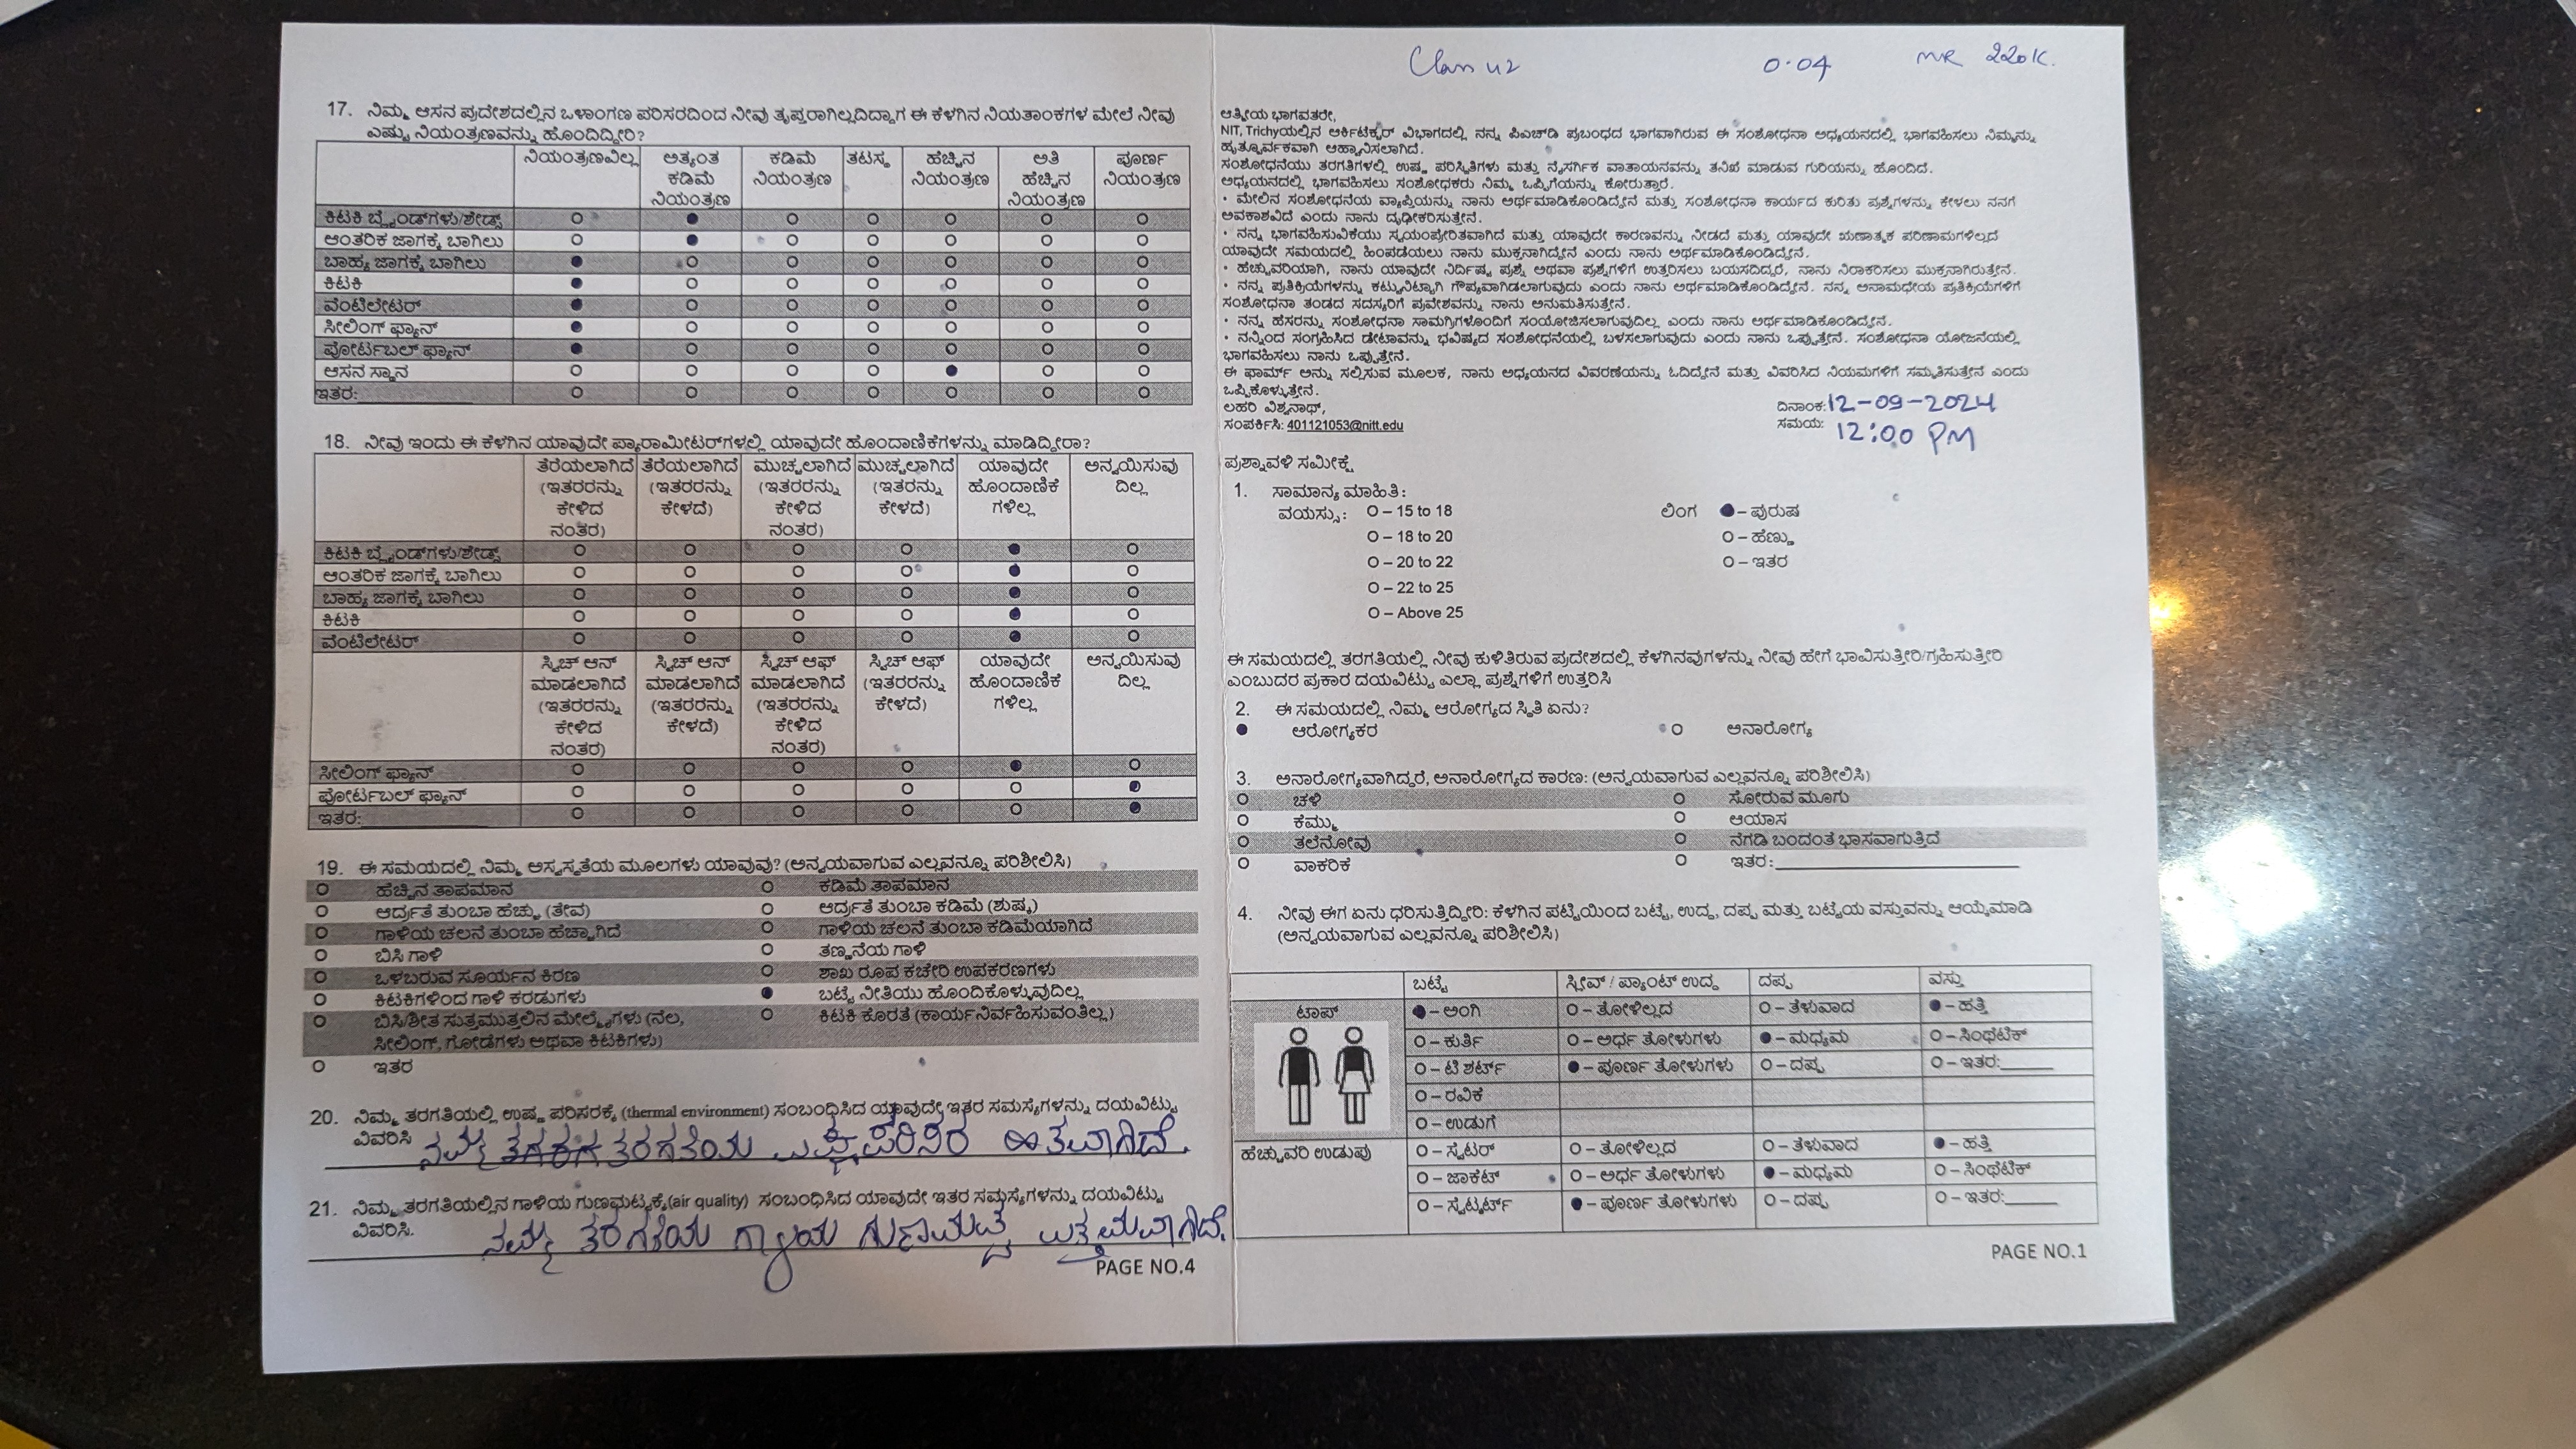 17. ನಿಮ್ಮ ಆಸನ ಪ್ರದೇಶದಲ್ಲಿನ ಒಳಾಂಗಣ ಪರಿಸರದಿಂದ ನೀವು ತೃಪ್ತರಾಗಿಲ್ಲದಿದ್ದಾಗ ಈ ಕೆಳಗಿನ ನಿಯತಾಂಕಗಳ ಮೇಲೆ ನೀವು
ಎಷ್ಟು ನಿಯಂತ್ರಣವನ್ನು ಹೊಂದಿದ್ದೀರಿ?
ನಿಯಂತ್ರಣವಿಲ್ಲ ಅತ್ಯಂತ ಕಡಿಮೆ ನಿಯಂತ್ರಣ ಕಡಿಮೆ ನಿಯಂತ್ರಣ ತಟಸ್ಥ ಹೆಚ್ಚಿನ ನಿಯಂತ್ರಣ ಅತಿ ಹೆಚ್ಚಿನ ನಿಯಂತ್ರಣ ಪೂರ್ಣ ನಿಯಂತ್ರಣ
ಕಿಟಕಿ ಬ್ಲೈಂಡ್‌ಗಳು/ಶೇಡ್ಸ್
ಆಂತರಿಕ ಜಾಗಕ್ಕೆ ಬಾಗಿಲು
ಬಾಹ್ಯ ಜಾಗಕ್ಕೆ ಬಾಗಿಲು
ಕಿಟಕಿ
ವೆಂಟಿಲೇಟರ್
ಸೀಲಿಂಗ್ ಫ್ಯಾನ್
ಪೋರ್ಟಬಲ್ ಫ್ಯಾನ್
ಆಸನ ಸ್ಥಾನ
ಇತರ:
18. ನೀವು ಇಂದು ಈ ಕೆಳಗಿನ ಯಾವುದೇ ಪ್ಯಾರಾಮೀಟರ್‌ಗಳಲ್ಲಿ ಯಾವುದೇ ಹೊಂದಾಣಿಕೆಗಳನ್ನು ಮಾಡಿದ್ದೀರಾ?
ತೆರೆಯಲಾಗಿದೆ (ಇತರರನ್ನು ಕೇಳಿದ ನಂತರ) ತೆರೆಯಲಾಗಿದೆ (ಇತರರನ್ನು ಕೇಳದೆ) ಮುಚ್ಚಲಾಗಿದೆ (ಇತರರನ್ನು ಕೇಳಿದ ನಂತರ) ಮುಚ್ಚಲಾಗಿದೆ (ಇತರರನ್ನು ಕೇಳದೆ) ಯಾವುದೇ ಹೊಂದಾಣಿಕೆ ಗಳಿಲ್ಲ ಅನ್ವಯಿಸುವು ದಿಲ್ಲ
ಕಿಟಕಿ ಬ್ಲೈಂಡ್‌ಗಳು/ಶೇಡ್ಸ್
ಆಂತರಿಕ ಜಾಗಕ್ಕೆ ಬಾಗಿಲು
ಬಾಹ್ಯ ಜಾಗಕ್ಕೆ ಬಾಗಿಲು
ಕಿಟಕಿ
ವೆಂಟಿಲೇಟರ್
ಸ್ವಿಚ್ ಆನ್ ಮಾಡಲಾಗಿದೆ (ಇತರರನ್ನು ಕೇಳಿದ ನಂತರ) ಸ್ವಿಚ್ ಆನ್ ಮಾಡಲಾಗಿದೆ (ಇತರರನ್ನು ಕೇಳದೆ) ಸ್ವಿಚ್ ಆಫ್ ಮಾಡಲಾಗಿದೆ (ಇತರರನ್ನು ಕೇಳಿದ ನಂತರ) ಸ್ವಿಚ್ ಆಫ್ (ಇತರರನ್ನು ಕೇಳದೆ) ಯಾವುದೇ ಹೊಂದಾಣಿಕೆ ಗಳಿಲ್ಲ ಅನ್ವಯಿಸುವು ದಿಲ್ಲ
ಸೀಲಿಂಗ್ ಫ್ಯಾನ್
ಪೋರ್ಟಬಲ್ ಫ್ಯಾನ್
ಇತರ:
19. ಈ ಸಮಯದಲ್ಲಿ ನಿಮ್ಮ ಅಸ್ವಸ್ಥತೆಯ ಮೂಲಗಳು ಯಾವುವು? (ಅನ್ವಯವಾಗುವ ಎಲ್ಲವನ್ನೂ ಪರಿಶೀಲಿಸಿ)
ಹೆಚ್ಚಿನ ತಾಪಮಾನ ಕಡಿಮೆ ತಾಪಮಾನ
ಆರ್ದ್ರತೆ ತುಂಬಾ ಹೆಚ್ಚು (ತೇವ) ಆರ್ದ್ರತೆ ತುಂಬಾ ಕಡಿಮೆ (ಶುಷ್ಕ)
ಗಾಳಿಯ ಚಲನೆ ತುಂಬಾ ಹೆಚ್ಚಾಗಿದೆ ಗಾಳಿಯ ಚಲನೆ ತುಂಬಾ ಕಡಿಮೆಯಾಗಿದೆ
ಬಿಸಿ ಗಾಳಿ ತಣ್ಣನೆಯ ಗಾಳಿ
ಒಳಬರುವ ಸೂರ್ಯನ ಕಿರಣ ಶಾಖ ರೂಪ ಕಚೇರಿ ಉಪಕರಣಗಳು
ಕಿಟಕಿಗಳಿಂದ ಗಾಳಿ ಕರಡುಗಳು ಬಟ್ಟೆ ನೀತಿಯು ಹೊಂದಿಕೊಳ್ಳುವುದಿಲ್ಲ
ಬಿಸಿ/ಶೀತ ಸುತ್ತಮುತ್ತಲಿನ ಮೇಲ್ಮೈಗಳು (ನೆಲ, ಕಿಟಕಿ ಕೊರತೆ (ಕಾರ್ಯನಿರ್ವಹಿಸುವಂತಿಲ್ಲ)
ಸೀಲಿಂಗ್, ಗೋಡೆಗಳು ಅಥವಾ ಕಿಟಕಿಗಳು)
ಇತರ
20. ನಿಮ್ಮ ತರಗತಿಯಲ್ಲಿ ಉಷ್ಣ ಪರಿಸರಕ್ಕೆ (thermal environment) ಸಂಬಂಧಿಸಿದ ಯಾವುದೇ ಇತರ ಸಮಸ್ಯೆಗಳನ್ನು ದಯವಿಟ್ಟು
ವಿವರಿಸಿ ನಮ್ಮ ತರಗತಿಯ ಉಷ್ಣ ಪರಿಸರ ಹಿತವಾಗಿದೆ.
21. ನಿಮ್ಮ ತರಗತಿಯಲ್ಲಿನ ಗಾಳಿಯ ಗುಣಮಟ್ಟಕ್ಕೆ (air quality) ಸಂಬಂಧಿಸಿದ ಯಾವುದೇ ಇತರ ಸಮಸ್ಯೆಗಳನ್ನು ದಯವಿಟ್ಟು
ವಿವರಿಸಿ. ನಮ್ಮ ತರಗತಿಯ ಗಾಳಿಯ ಗುಣಮಟ್ಟ ಉತ್ತಮವಾಗಿದೆ.
PAGE NO.4
0.04 MR 220K.
ಆತ್ಮೀಯ ಭಾಗವತರೇ,
NIT, Trichyಯಲ್ಲಿನ ಆರ್ಕಿಟೆಕ್ಚರ್ ವಿಭಾಗದಲ್ಲಿ ನನ್ನ ಪಿಎಚ್‌ಡಿ ಪ್ರಬಂಧದ ಭಾಗವಾಗಿರುವ ಈ ಸಂಶೋಧನಾ ಅಧ್ಯಯನದಲ್ಲಿ ಭಾಗವಹಿಸಲು ನಿಮ್ಮನ್ನು
ಹೃತ್ಪೂರ್ವಕವಾಗಿ ಆಹ್ವಾನಿಸಲಾಗಿದೆ.
ಸಂಶೋಧನೆಯು ತರಗತಿಗಳಲ್ಲಿ ಉಷ್ಣ ಪರಿಸ್ಥಿತಿಗಳು ಮತ್ತು ನೈಸರ್ಗಿಕ ವಾತಾಯನವನ್ನು ತನಿಖೆ ಮಾಡುವ ಗುರಿಯನ್ನು ಹೊಂದಿದೆ.
ಅಧ್ಯಯನದಲ್ಲಿ ಭಾಗವಹಿಸಲು ಸಂಶೋಧಕರು ನಿಮ್ಮ ಒಪ್ಪಿಗೆಯನ್ನು ಕೋರುತ್ತಾರೆ.
• ಮೇಲಿನ ಸಂಶೋಧನೆಯ ವ್ಯಾಪ್ತಿಯನ್ನು ನಾನು ಅರ್ಥಮಾಡಿಕೊಂಡಿದ್ದೇನೆ ಮತ್ತು ಸಂಶೋಧನಾ ಕಾರ್ಯದ ಕುರಿತು ಪ್ರಶ್ನೆಗಳನ್ನು ಕೇಳಲು ನನಗೆ
ಅವಕಾಶವಿದೆ ಎಂದು ನಾನು ದೃಢೀಕರಿಸುತ್ತೇನೆ.
• ನನ್ನ ಭಾಗವಹಿಸುವಿಕೆಯು ಸ್ವಯಂಪ್ರೇರಿತವಾಗಿದೆ ಮತ್ತು ಯಾವುದೇ ಕಾರಣವನ್ನು ನೀಡದೆ ಮತ್ತು ಯಾವುದೇ ಋಣಾತ್ಮಕ ಪರಿಣಾಮಗಳಿಲ್ಲದೆ
ಯಾವುದೇ ಸಮಯದಲ್ಲಿ ಹಿಂಪಡೆಯಲು ನಾನು ಮುಕ್ತನಾಗಿದ್ದೇನೆ ಎಂದು ನಾನು ಅರ್ಥಮಾಡಿಕೊಂಡಿದ್ದೇನೆ.
• ಹೆಚ್ಚುವರಿಯಾಗಿ, ನಾನು ಯಾವುದೇ ನಿರ್ದಿಷ್ಟ ಪ್ರಶ್ನೆ ಅಥವಾ ಪ್ರಶ್ನೆಗಳಿಗೆ ಉತ್ತರಿಸಲು ಬಯಸದಿದ್ದರೆ, ನಾನು ನಿರಾಕರಿಸಲು ಮುಕ್ತನಾಗಿರುತ್ತೇನೆ.
• ನನ್ನ ಪ್ರತಿಕ್ರಿಯೆಗಳನ್ನು ಕಟ್ಟುನಿಟ್ಟಾಗಿ ಗೌಪ್ಯವಾಗಿಡಲಾಗುವುದು ಎಂದು ನಾನು ಅರ್ಥಮಾಡಿಕೊಂಡಿದ್ದೇನೆ. ನನ್ನ ಅನಾಮಧೇಯ ಪ್ರತಿಕ್ರಿಯೆಗಳಿಗೆ
ಸಂಶೋಧನಾ ತಂಡದ ಸದಸ್ಯರಿಗೆ ಪ್ರವೇಶವನ್ನು ನಾನು ಅನುಮತಿಸುತ್ತೇನೆ.
• ನನ್ನ ಹೆಸರನ್ನು ಸಂಶೋಧನಾ ಸಾಮಗ್ರಿಗಳೊಂದಿಗೆ ಸಂಯೋಜಿಸಲಾಗುವುದಿಲ್ಲ ಎಂದು ನಾನು ಅರ್ಥಮಾಡಿಕೊಂಡಿದ್ದೇನೆ.
• ನನ್ನಿಂದ ಸಂಗ್ರಹಿಸಿದ ಡೇಟಾವನ್ನು ಭವಿಷ್ಯದ ಸಂಶೋಧನೆಯಲ್ಲಿ ಬಳಸಲಾಗುವುದು ಎಂದು ನಾನು ಒಪ್ಪುತ್ತೇನೆ. ಸಂಶೋಧನಾ ಯೋಜನೆಯಲ್ಲಿ
ಭಾಗವಹಿಸಲು ನಾನು ಒಪ್ಪುತ್ತೇನೆ.
ಈ ಫಾರ್ಮ್ ಅನ್ನು ಸಲ್ಲಿಸುವ ಮೂಲಕ, ನಾನು ಅಧ್ಯಯನದ ವಿವರಣೆಯನ್ನು ಓದಿದ್ದೇನೆ ಮತ್ತು ವಿವರಿಸಿದ ನಿಯಮಗಳಿಗೆ ಸಮ್ಮತಿಸುತ್ತೇನೆ ಎಂದು
ಒಪ್ಪಿಕೊಳ್ಳುತ್ತೇನೆ.
ಲಹರಿ ವಿಶ್ವನಾಥ್, ದಿನಾಂಕ: 12-09-2024
ಸಂಪರ್ಕಿಸಿ: 401121053@nitt.edu ಸಮಯ: 12:00 PM
ಪ್ರಶ್ನಾವಳಿ ಸಮೀಕ್ಷೆ
1. ಸಾಮಾನ್ಯ ಮಾಹಿತಿ:
ವಯಸ್ಸು: O – 15 to 18 ಲಿಂಗ – ಪುರುಷ
O – 18 to 20 O – ಹೆಣ್ಣು
O – 20 to 22 O – ಇತರ
O – 22 to 25
O – Above 25
ಈ ಸಮಯದಲ್ಲಿ ತರಗತಿಯಲ್ಲಿ ನೀವು ಕುಳಿತಿರುವ ಪ್ರದೇಶದಲ್ಲಿ ಕೆಳಗಿನವುಗಳನ್ನು ನೀವು ಹೇಗೆ ಭಾವಿಸುತ್ತೀರಿ/ಗ್ರಹಿಸುತ್ತೀರಿ
ಎಂಬುದರ ಪ್ರಕಾರ ದಯವಿಟ್ಟು ಎಲ್ಲಾ ಪ್ರಶ್ನೆಗಳಿಗೆ ಉತ್ತರಿಸಿ
2. ಈ ಸಮಯದಲ್ಲಿ ನಿಮ್ಮ ಆರೋಗ್ಯದ ಸ್ಥಿತಿ ಏನು?
ಆರೋಗ್ಯಕರ ಅನಾರೋಗ್ಯ
3. ಅನಾರೋಗ್ಯವಾಗಿದ್ದರೆ, ಅನಾರೋಗ್ಯದ ಕಾರಣ: (ಅನ್ವಯವಾಗುವ ಎಲ್ಲವನ್ನೂ ಪರಿಶೀಲಿಸಿ)
ಚಳಿ ಸೋರುವ ಮೂಗು
ಕೆಮ್ಮು ಆಯಾಸ
ತಲೆನೋವು ನೆಗಡಿ ಬಂದಂತೆ ಭಾಸವಾಗುತ್ತಿದೆ
ವಾಕರಿಕೆ ಇತರ:
4. ನೀವು ಈಗ ಏನು ಧರಿಸುತ್ತಿದ್ದೀರಿ: ಕೆಳಗಿನ ಪಟ್ಟಿಯಿಂದ ಬಟ್ಟೆ, ಉದ್ದ, ದಪ್ಪ ಮತ್ತು ಬಟ್ಟೆಯ ವಸ್ತುವನ್ನು ಆಯ್ಕೆಮಾಡಿ
(ಅನ್ವಯವಾಗುವ ಎಲ್ಲವನ್ನೂ ಪರಿಶೀಲಿಸಿ)
ಬಟ್ಟೆ ಸ್ಲೀವ್ / ಪ್ಯಾಂಟ್ ಉದ್ದ ದಪ್ಪ ವಸ್ತು
ಟಾಪ್ – ಅಂಗಿ O – ತೋಳಿಲ್ಲದ O – ತೆಳುವಾದ – ಹತ್ತಿ
O – ಕುರ್ತಿ O – ಅರ್ಧ ತೋಳುಗಳು – ಮಧ್ಯಮ O – ಸಿಂಥೆಟಿಕ್
O – ಟಿ ಶರ್ಟ್ – ಪೂರ್ಣ ತೋಳುಗಳು O – ದಪ್ಪ O – ಇತರ:
O – ರವಿಕೆ
O – ಉಡುಗೆ
ಹೆಚ್ಚುವರಿ ಉಡುಪು O – ಸ್ವೆಟರ್ O – ತೋಳಿಲ್ಲದ O – ತೆಳುವಾದ – ಹತ್ತಿ
O – ಜಾಕೆಟ್ O – ಅರ್ಧ ತೋಳುಗಳು – ಮಧ್ಯಮ O – ಸಿಂಥೆಟಿಕ್
O – ಸ್ವೆಟ್ಶರ್ಟ್ – ಪೂರ್ಣ ತೋಳುಗಳು O – ದಪ್ಪ O – ಇತರ:
PAGE NO.1